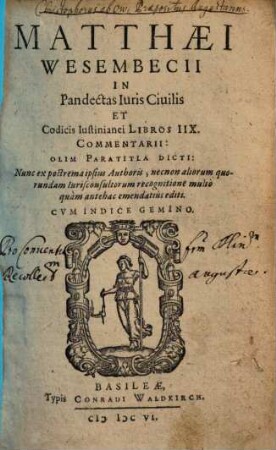 MATTHÆI
WESEMBECII
IN
Pandectas Iuris Ciuilis
ET
Codicis Iustinianei LIBROS IIX.
COMMENTARII:
OLIM PARATITLA DICTI:
Nunc ex postrema ipsius Authoris, necnon aliorum quo-
rundam Iurisconsultorum recognitione multò
quàm antehac emendatius editi.
CVM INDICE GEMINO.
Pro Conuentu
Augustæ
BASILEÆ,
Typis CONRADI WALDKIRCH.
CIƆ IƆC VI.